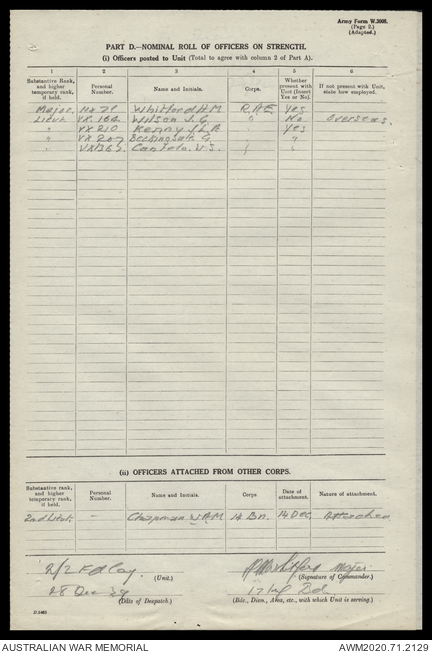 Army Form W.3008.
(Page 2.)
(Adapted.)
PART D.—NOMINAL ROLL OF OFFICERS ON STRENGTH.
(i) Officers posted to Unit (Total to agree with column 2 of Part A).
1 2 3 4 5 6
Substantive Rank, and higher temporary rank, if held. Personal Number. Name and Initials. Corps. Whether present with Unit (Insert Yes or No). If not present with Unit, state how employed.
Major Whitford A M R.A.E. Yes
Lieut VX. 164 Wilson J. G. " No Overseas.
" VX 210 Kenny J L A Yes
" VX 207 Beckingsale G "
" Cantelo. V.S. "
(ii) OFFICERS ATTACHED FROM OTHER CORPS.
Substantive rank, and higher temporary rank, if held. Personal Number. Name and Initials. Corps Date of attachment. Nature of attachment.
2nd Lieut. — Chapman W.A.M 14 Bn. 14 Dec. Attached
2/2 Fd Coy. (Unit.) Major (Signature of Commander.)
28 Dec 39 (Date of Despatch.) 17 Inf Bde (Bde., Divn., Area, etc., with which Unit is serving.)
AUSTRALIAN WAR MEMORIAL AWM2020.71.2129